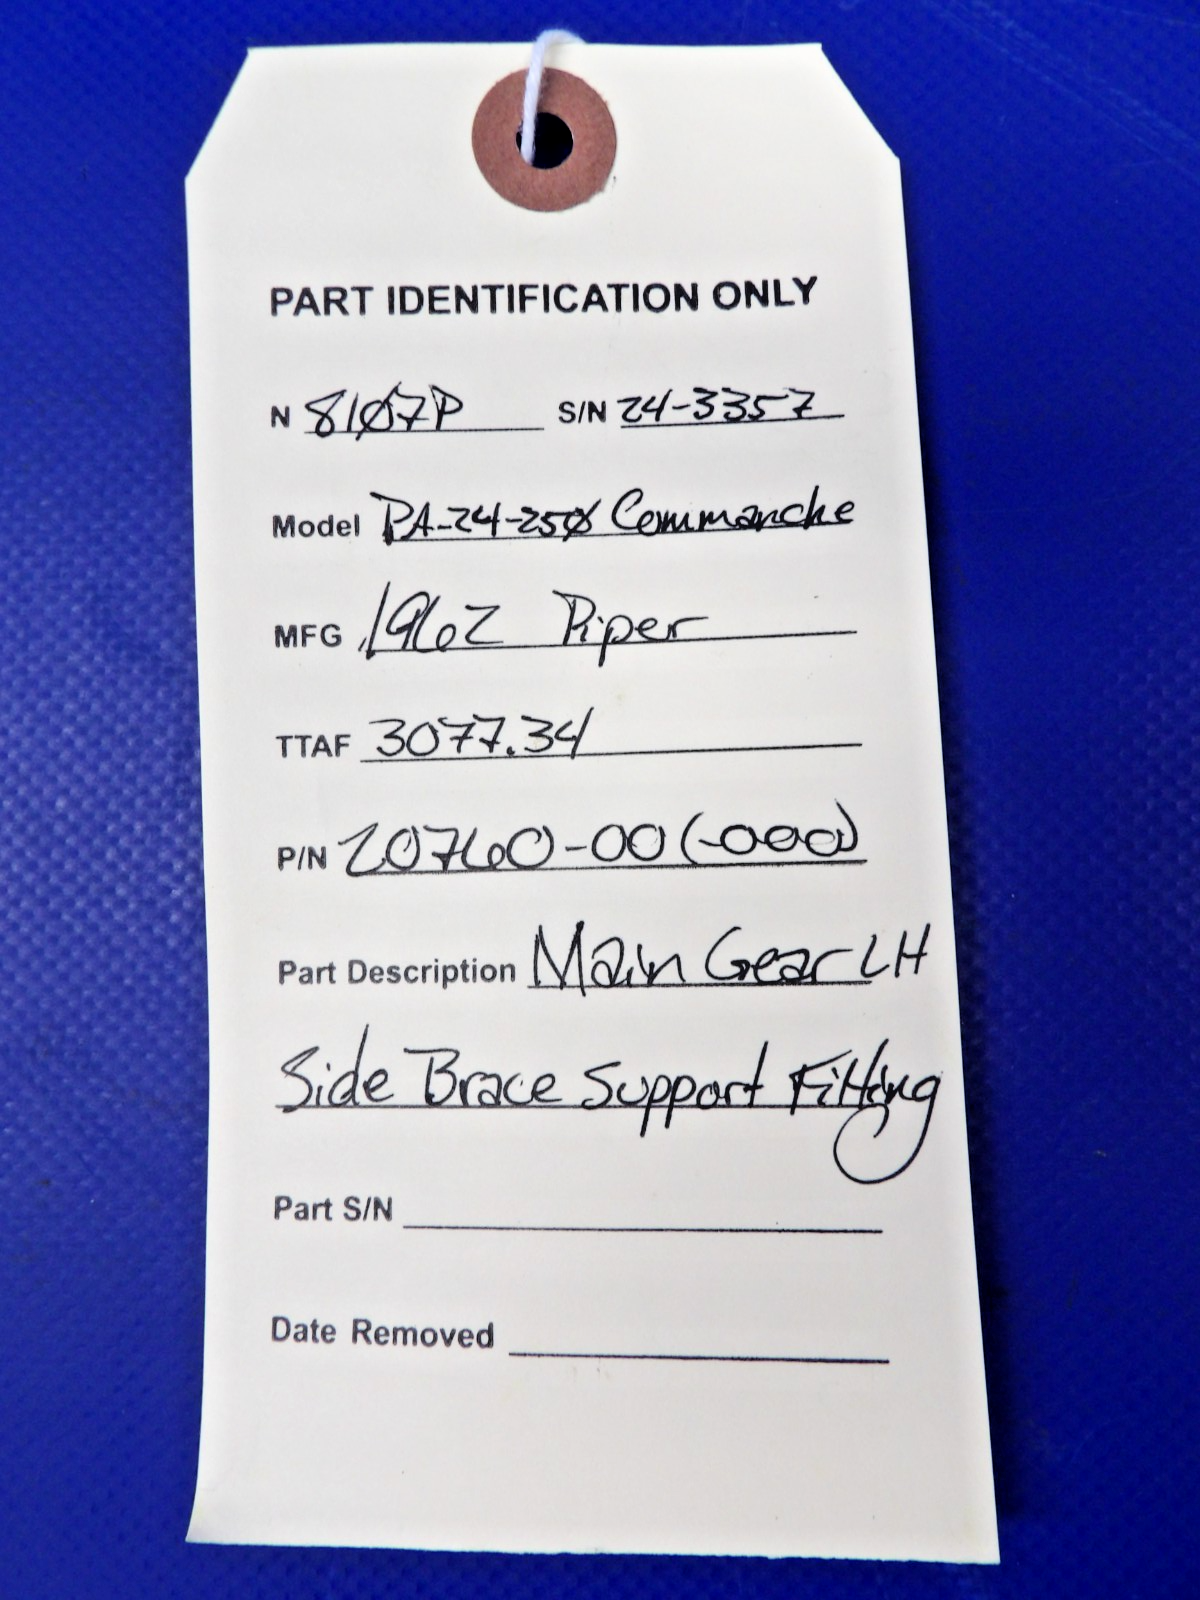 PART IDENTIFICATION ONLY
N 8107P S/N 24-3357
Model PA-24-250 Commanche
MFG 1962 Piper
TTAF 3077.34
P/N 20760-00 (-000)
Part Description Main Gear LH
Side Brace Support Fitting
Part S/N
Date Removed